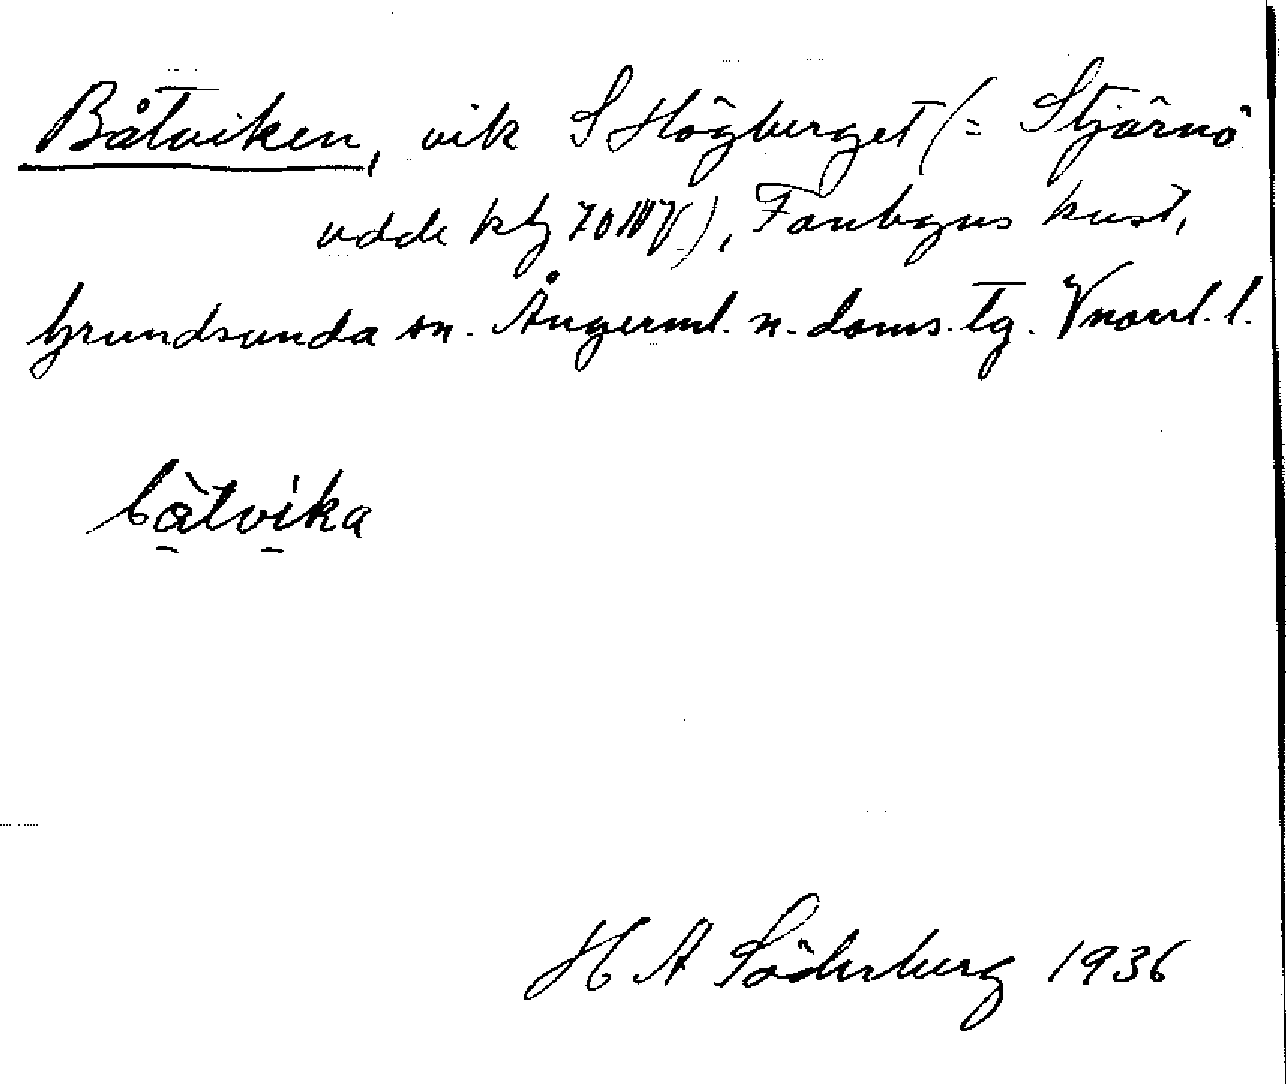 Båtviken, vik S Högberget (= Stjärnö
udde kbl 70 NV), Fanbyns kust,
Grundsunda sn. Ångerml. n. doms. tg. Vnorrl. l.
bàtvika
H A Söderberg 1936